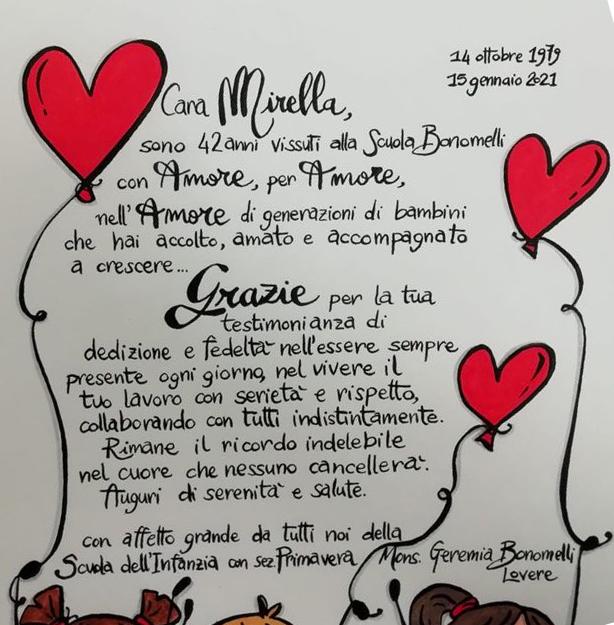 14 ottobre 1979
15 gennaio 2021
Cara Mirella,
sono 42 anni vissuti alla Scuola Bonomelli
con Amore, per Amore,
nell'Amore di generazioni di bambini
che hai accolto, amato e accompagnato
a crescere...
Grazie per la tua
testimonianza di
dedizione e fedeltà nell'essere sempre
presente ogni giorno, nel vivere il
tuo lavoro con serietà e rispetto,
collaborando con tutti indistintamente.
Rimane il ricordo indelebile
nel cuore che nessuno cancellerà.
Auguri di serenità e salute.
con affetto grande da tutti noi della
Scuola dell'Infanzia con sez. Primavera Mons. Geremia Bonomelli
Lovere